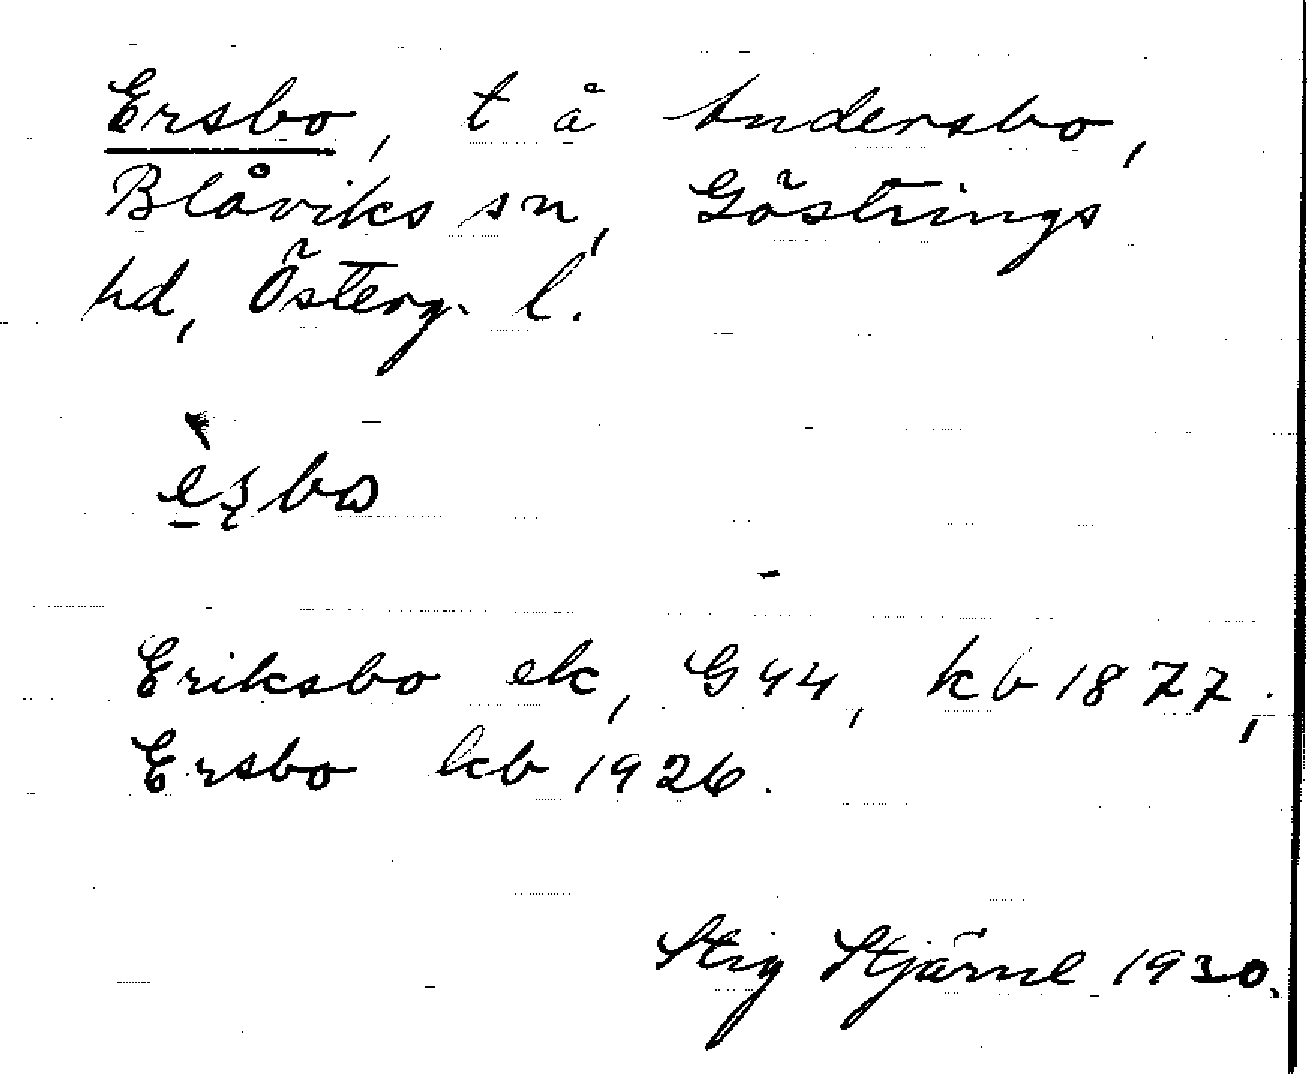 Ersbo, t å Andersbo,
Blåviks sn, Göstrings
hd, Österg. l.
Eriksbo ek, G 44, kb 1877;
Ersbo kb 1926.
Stig Stjärne 1930.